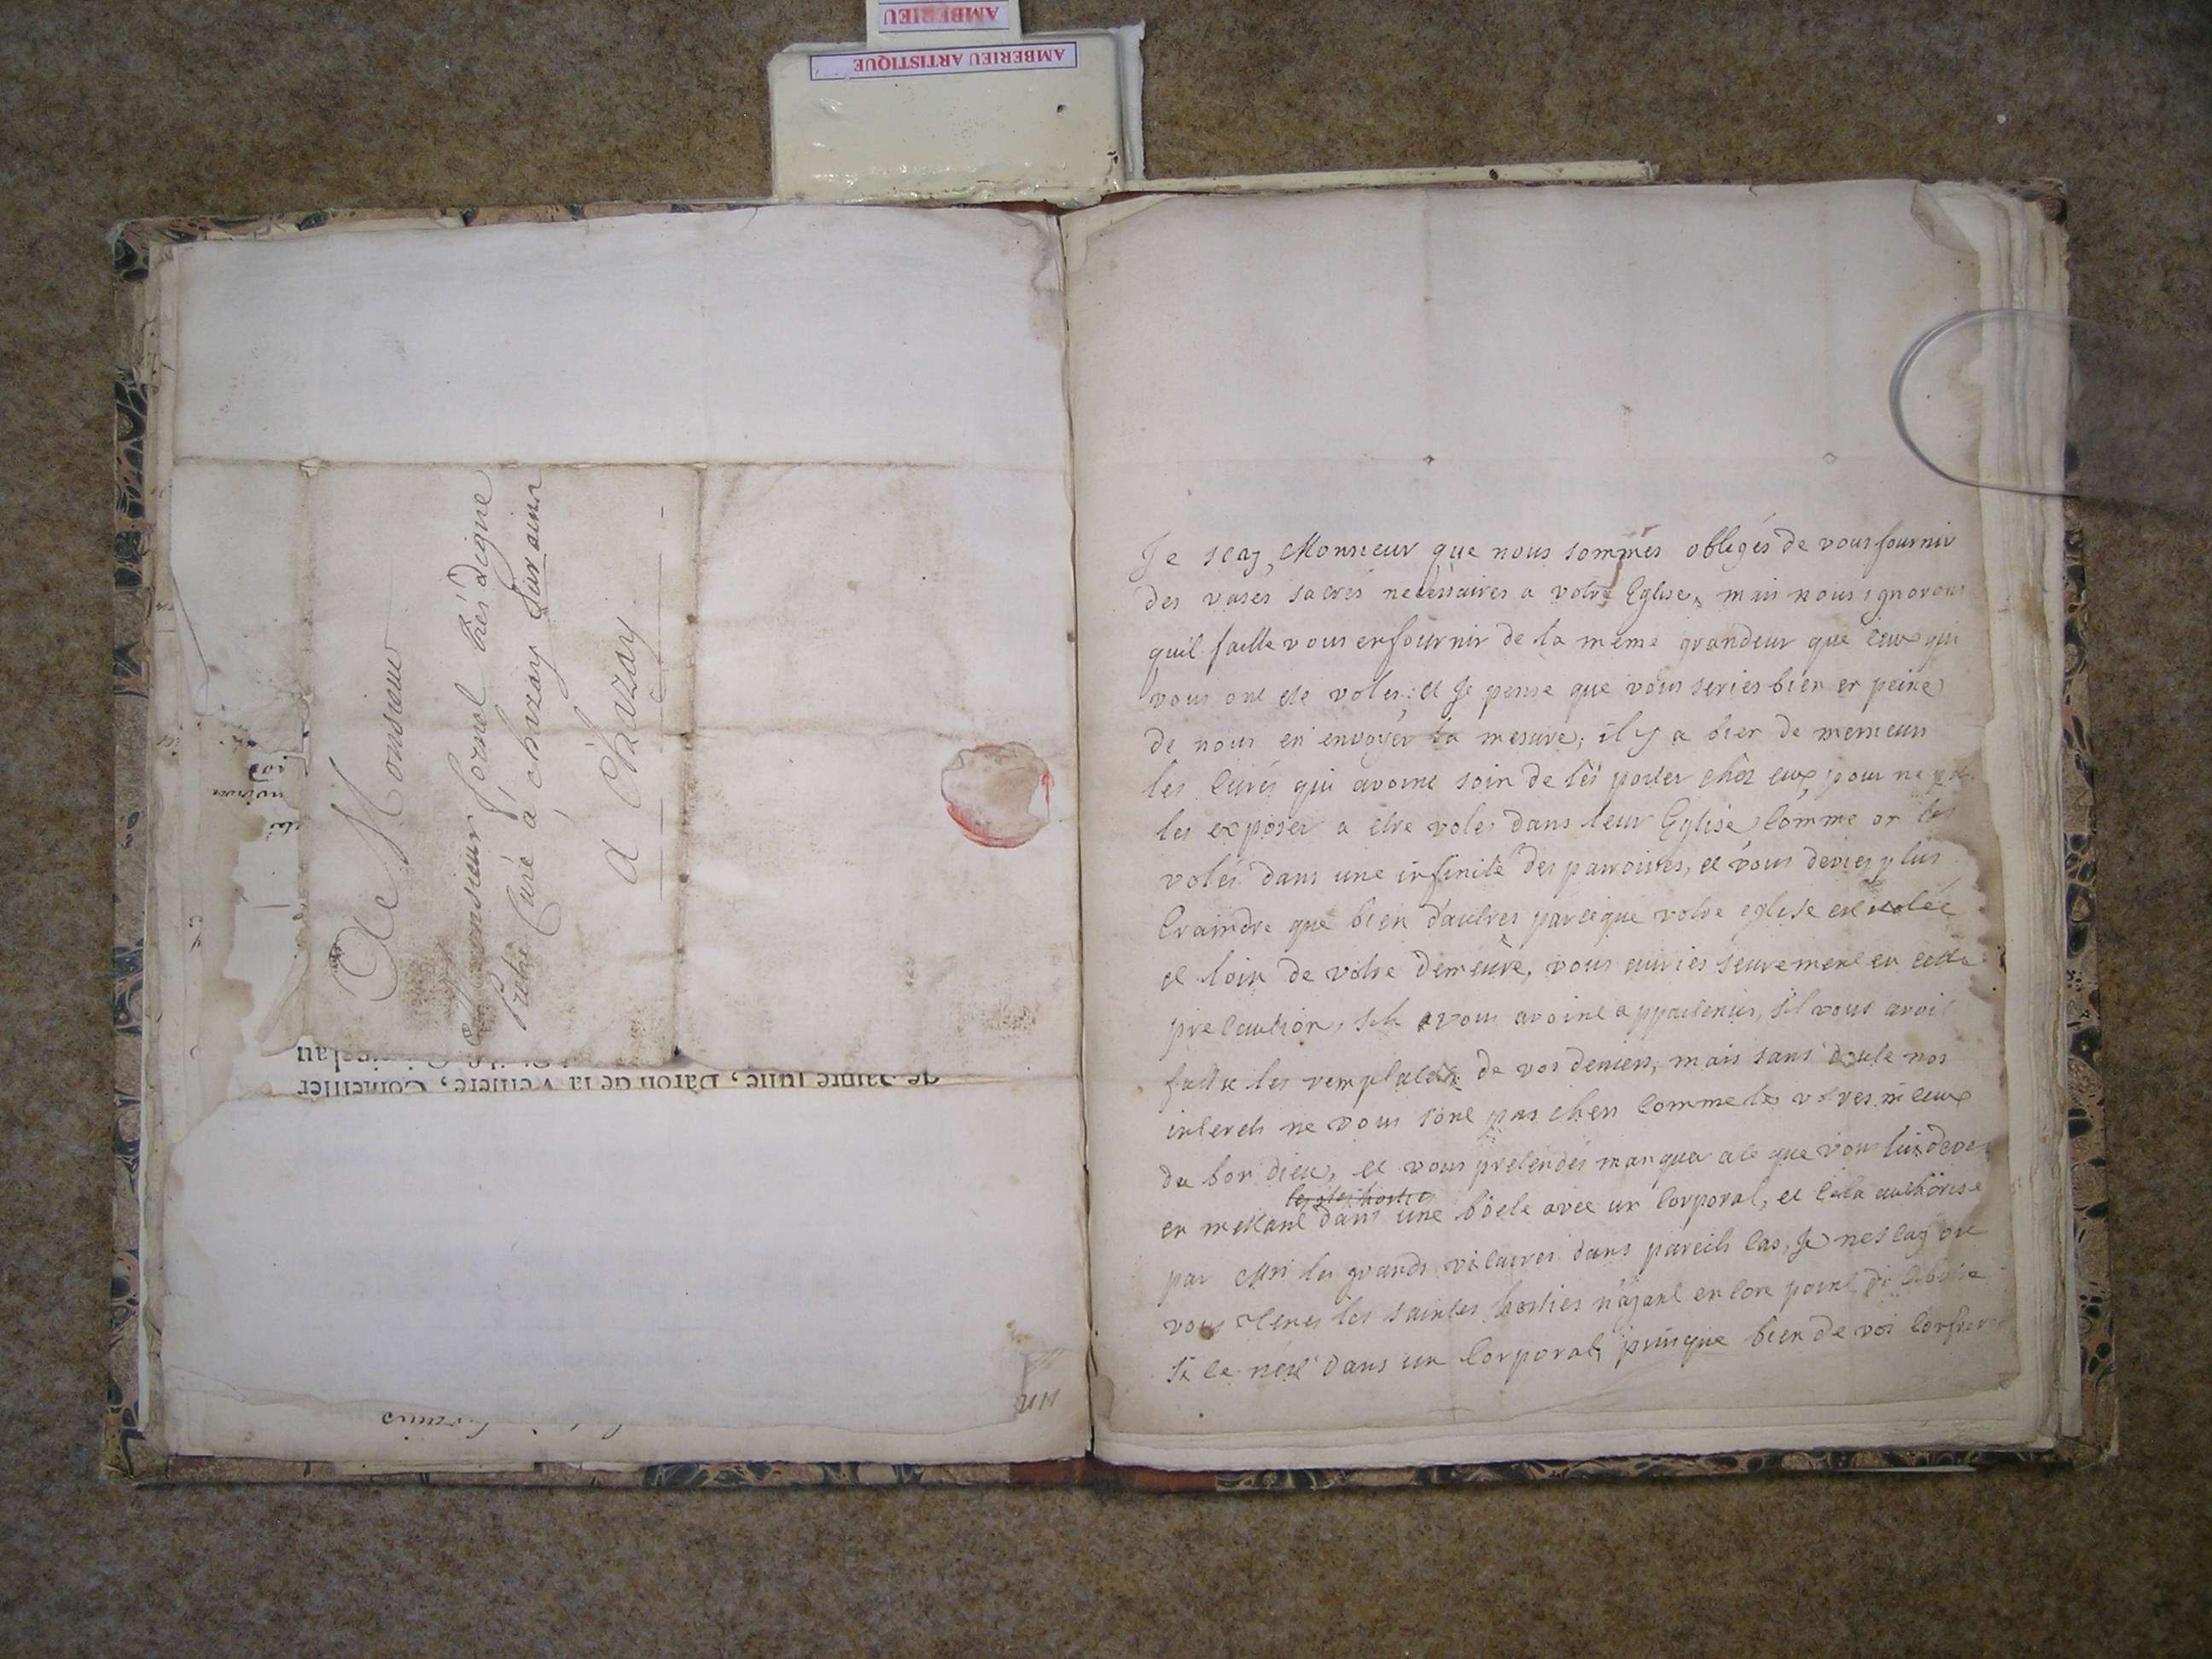 AMBERIEU
AMBERIEU ARTISTIQUE
A Monsieur
Monsieur Jornol très digne
Pretre Curé à chazay Sur ains
A Chazay
de Sainte Julie, Baron de la Verliere, Conseiller
Je scay, Monsieur que nous sommes obligés de vous fournir
des vases sacrés necessaires a votre Eglise, mais nous ignorons
quil faille vous en fournir de la meme grandeur que ceux qui
vous ont eté volés; et Je pense que vous series bien en peine
de nous en envoyer la mesure; il y a bien de messieurs
les Curés qui avoint soin de les porter chez eux, pour ne pas
les exposer a etre volés dans leur Eglise, comme on les
volés dans une infinité des parroisses, et vous devies plus
craindre que bien d'autres parceque votre eglise est isolée
et loin de votre demeure, vous auries seurement eu cette
precaution, sils vous avoint appartenus, sil vous avoit
fallu les remplacer de vos deniers, mais sans doute nos
interets ne vous sont pas chers comme les votres ni ceux
du bon dieu, et vous pretendés manquer a ce que vous lui deves
en mettant dans une boete avec un corporal, et cela authorisé
par Mrs les grands vicaires dans pareils cas, Je ne scay ou
vous tenes les saintes hosties n'ayant encore point de ciboire
si ce n'est dans un corporal, puisque bien de vos confreres